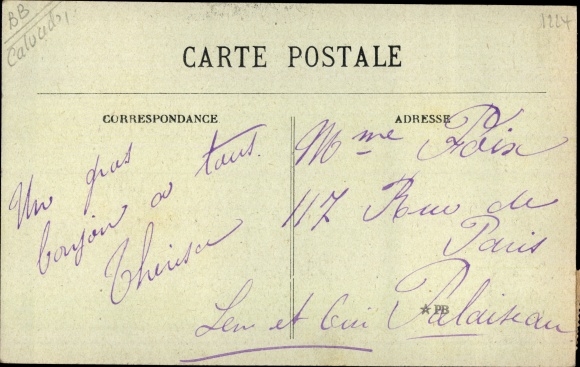 BB
Calvados
1224
CARTE POSTALE
CORRESPONDANCE
ADRESSE
Un gros
bonjour a tous.
Thérèse
Mme Foix
117 Rue de
Paris
Palaiseau
PB
et